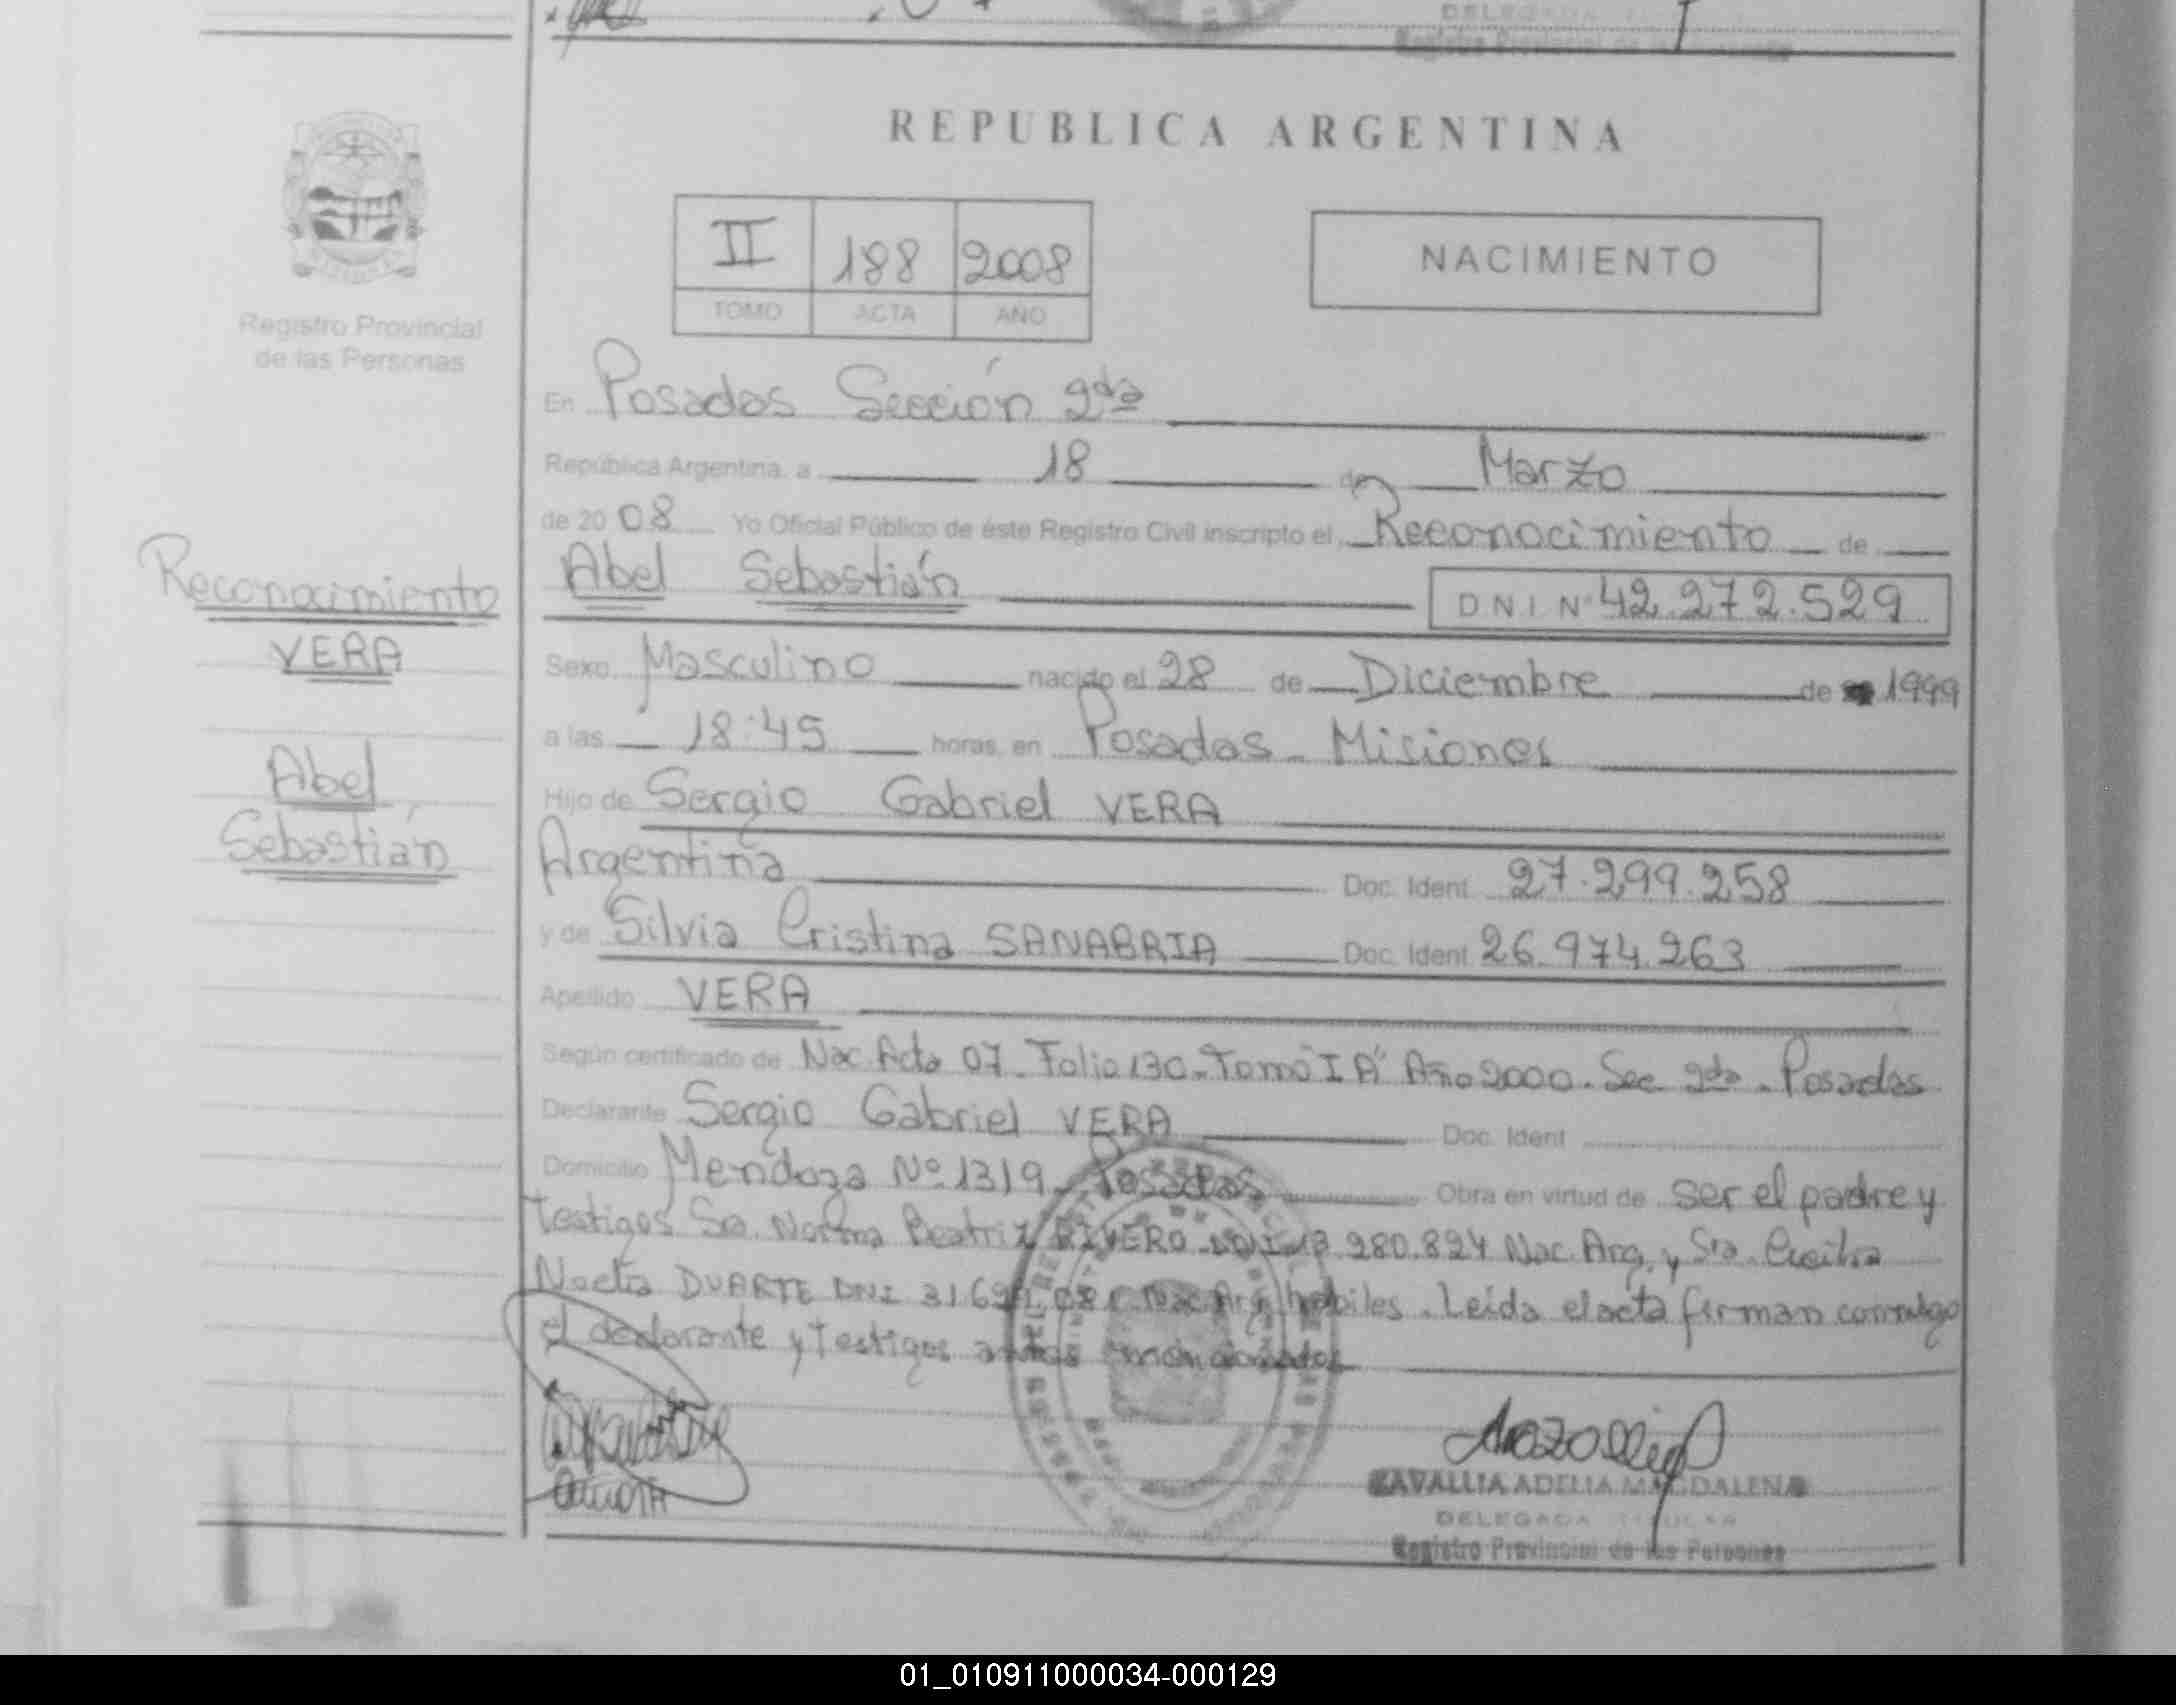 REPUBLICA ARGENTINA
II 188 2008
TOMO ACTA AÑO
NACIMIENTO
Registro Provincial
de las Personas
En Posadas Sección 2da
República Argentina, a 18 de Marzo
de 2008 Yo Oficial Público de éste Registro Civil inscripto el Reconocimiento de
Abel Sebastián DNI Nº 42.272.529
Reconocimiento
VERA
Abel
Sebastián
Sexo Masculino nacido el 28 de Diciembre de 1999
a las 18:45 horas, en Posadas - Misiones
Hijo de Sergio Gabriel VERA
Argentina Doc. Ident. 27.299.258
y de Silvia Cristina SANABRIA Doc. Ident. 26.974.263
Apellido VERA
Según certificado de Nac. Acta 07 - Folio 130 - Tomo "I A" Año 2000 - Sec 2da - Posadas
Declarante Sergio Gabriel VERA Doc. Ident.
Domicilio Mendoza Nº 1319 - Posadas Obra en virtud de ser el padre y
testigos Sra. Norma Beatriz RIVERO 280.824 Nac. Arg. y Sra. Cecilia
DUARTE DNI hábiles. Leída el acta firman conmigo
el declarante y testigos antes mencionados
ZAVALLIA ADELIA MAGDALENA
DELEGADA TITULAR
Registro Provincial de las Personas
01_010911000034-000129